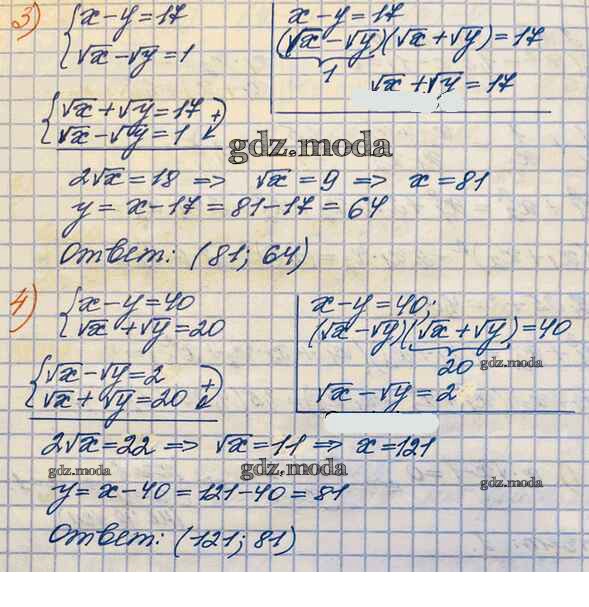 3) { x-y=17
√x-√y=1
x-y=17
(√x-√y)(√x+√y)=17
1
√x+√y=17
{ √x+√y=17
√x-√y=1 +
gdz.moda
2√x=18 => √x=9 => x=81
y=x-17=81-17=64
Ответ: (81; 64)
4) { x-y=40
√x+√y=20
x-y=40;
(√x-√y)(√x+√y)=40
20
gdz.moda
√x-√y=2
{ √x-√y=2
√x+√y=20 +
2√x=22 => √x=11 => x=121
gdz.moda
gdz.moda
gdz.moda
y=x-40=121-40=81
Ответ: (121; 81)